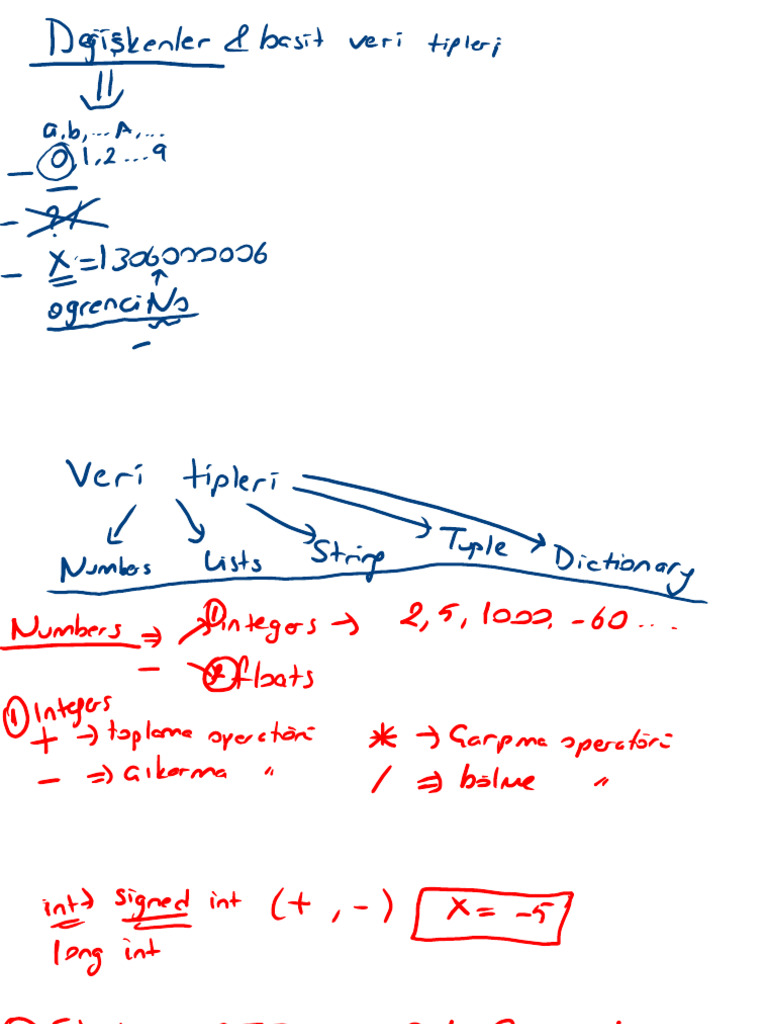 Değişkenler & basit veri tipleri
a,b,...A,...
0,1,2...9
X=1306000006
ogrenciNo
Veri tipleri
Numbers Lists String Tuple Dictionary
Numbers ⇒ ① integers → 2, 5, 1000, -60...
② floats
① Integers
+ → toplama operatörü * → Çarpma operatörü
- ⇒ çıkarma " / ⇒ bölme "
int → signed int (+, -) X = -5
long int